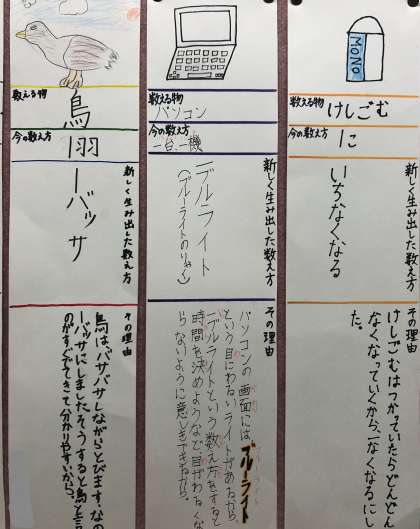 数える物
鳥
今の数え方
1羽
新しく生み出した数え方
一バッサ
その理由
鳥は、バサバサしながらとびます。なので
一バッサにしました。そうすると鳥と言う
のがすぐでてきて分かりやすいから。
数える物
パソコン
今の数え方
一台、一機
新しく生み出した数え方
一デルライト
(ブルーライトのりゃく)
その理由
パソコンの画面には、ブルーライト
という目にわるいライトがあるから
一デルライトという数え方をすると
時間を決めようなど、目がわるくな
らないように意しきできるから。
MONO
数える物
けしごむ
今の数え方
1こ
新しく生み出した数え方
いちなくなる
その理由
けしごむはつかっていたらどんどん
なくなっていくから、一なくなるにし
た。